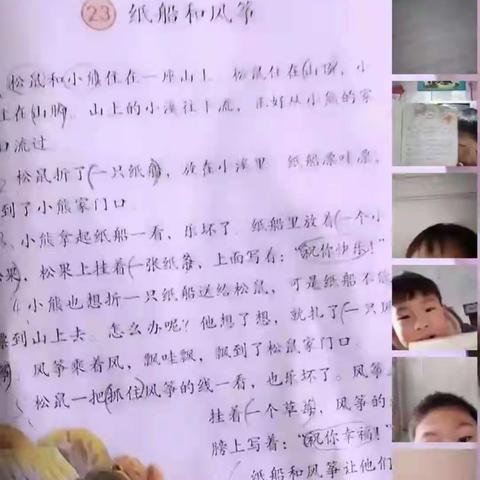 23 纸船和风筝
松鼠和小熊住在一座山上。松鼠住在山顶,小
住在山脚。山上的小溪往下流,正好从小熊的家
口流过
松鼠折了一只纸船,放在小溪里。纸船漂哇漂,
到了小熊家门口。
3 小熊拿起纸船一看,乐坏了。纸船里放着一个小
松果,松果上挂着一张纸条,上面写着:“祝你快乐!”
4 小熊也想折一只纸船送给松鼠,可是纸船不能
漂到山上去。怎么办呢?他想了想,就扎了一只风
筝。风筝乘着风,飘哇飘,飘到了松鼠家门口。
松鼠一把抓住风筝的线一看,也乐坏了。风筝
挂着一个草莓,风筝的
膀上写着:“祝你幸福!”
纸船和风筝让他们